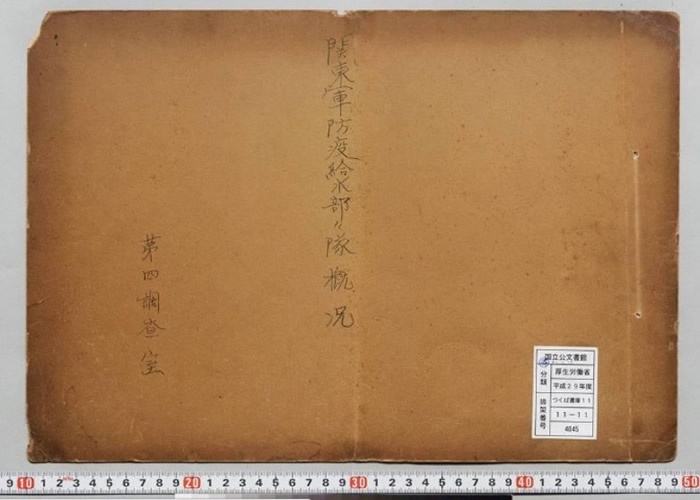 関東軍防疫給水部々隊概況
第四調査室
国立公文書館
分類
厚生労働省
平成29年度
つくば書庫11
排架番号
11-11
4045
9 10 1 2 3 4 5 6 7 8 9 20 1 2 3 4 5 6 7 8 9 30 1 2 3 4 5 6 7 8 9 40 1 2 3 4 5 6 7 8 9 50